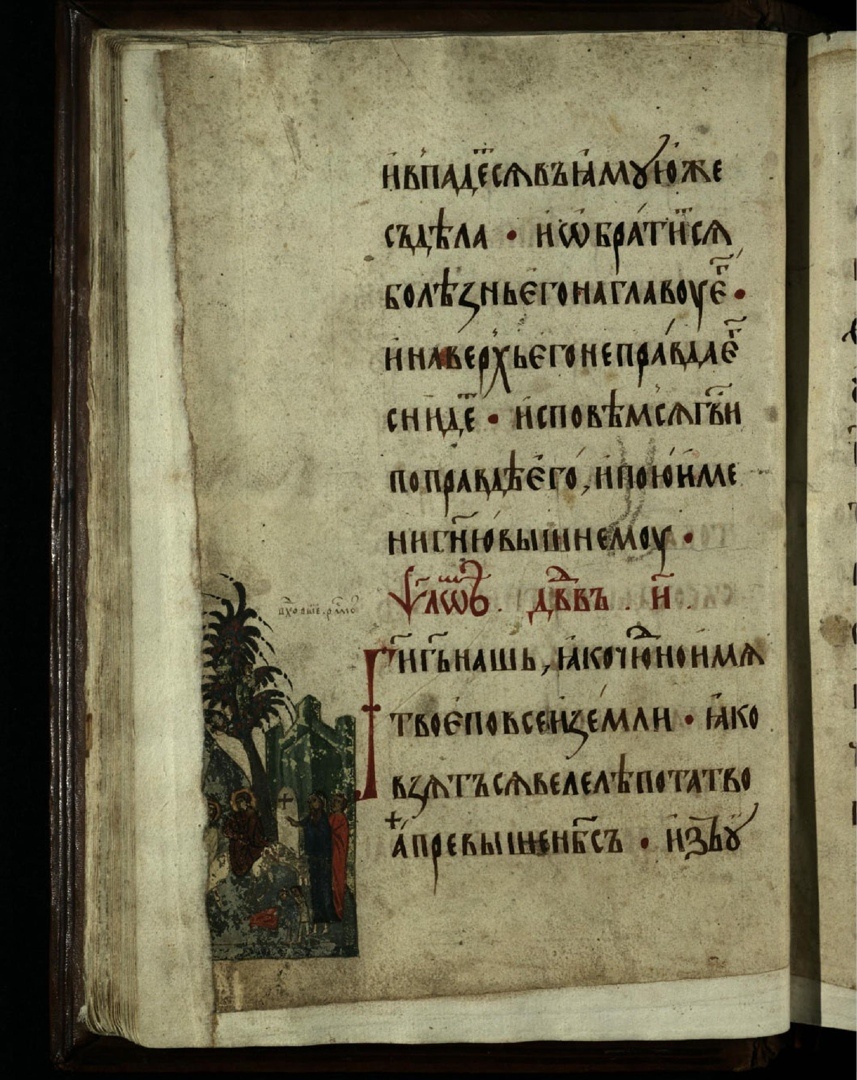 и҆впаде́сѧвъꙗ҆мꙋю҆же
съдѣла • и҆ѡ҆брати́тсѧ
болѣзньє҆гонаглавоуе҆г҃
и҆наверхъє҆гонепра́вдає҆г҃
сни́де • и҆сповѣмсѧгв҃и
поправдѣє҆го̀, и҆пою҆и҆ме
нигн҃ю҆вышнемоу •
ѱл҃ѡⷨ. дв҃въ. и҃
Ги҃гь҃нашь, ꙗ҆кочю҆дⷩ҇ои҆мѧ
твоє҆повсеи҆земли • ꙗ҆ко
взѧтъсѧвелелѣпотатво
ꙗ҆превышенб҃съ • и҆зъꙋ҆